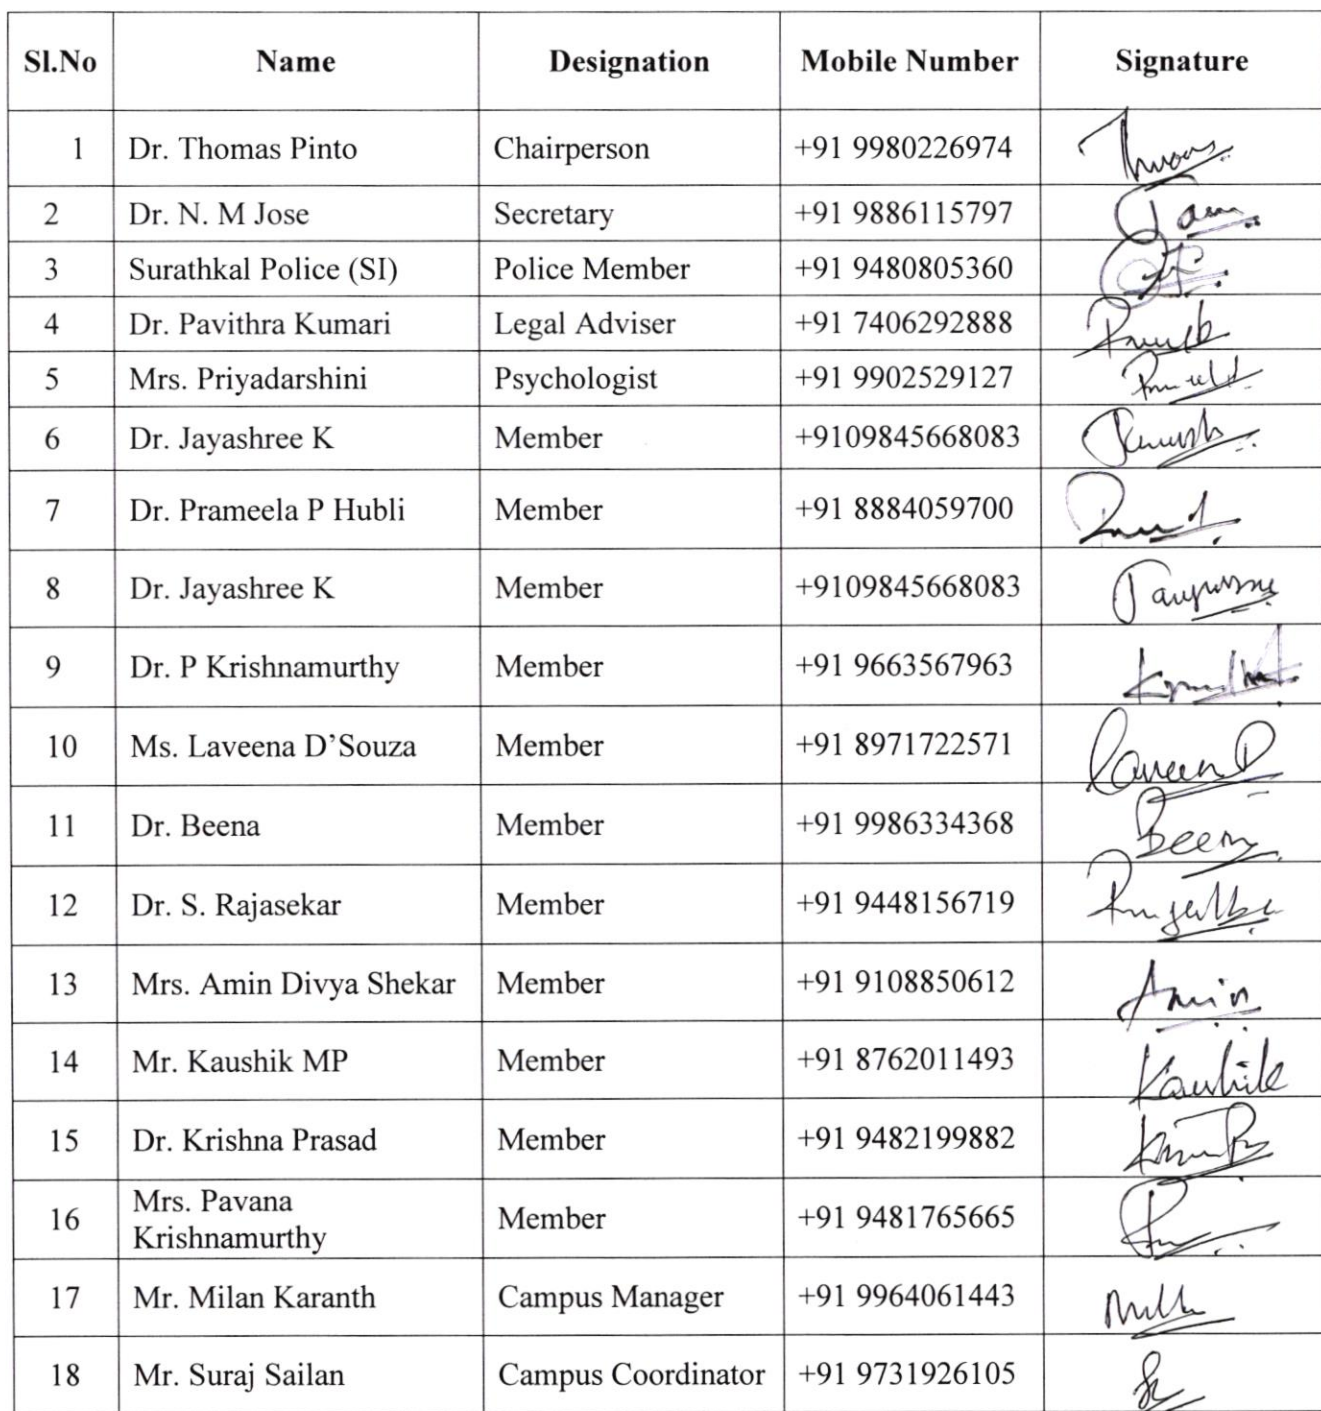 Sl.No Name Designation Mobile Number Signature
1 Dr. Thomas Pinto Chairperson +91 9980226974
2 Dr. N. M Jose Secretary +91 9886115797
3 Surathkal Police (SI) Police Member +91 9480805360
4 Dr. Pavithra Kumari Legal Adviser +91 7406292888
5 Mrs. Priyadarshini Psychologist +91 9902529127
6 Dr. Jayashree K Member +9109845668083
7 Dr. Prameela P Hubli Member +91 8884059700
8 Dr. Jayashree K Member +9109845668083
9 Dr. P Krishnamurthy Member +91 9663567963
10 Ms. Laveena D’Souza Member +91 8971722571
11 Dr. Beena Member +91 9986334368 Beena
12 Dr. S. Rajasekar Member +91 9448156719
13 Mrs. Amin Divya Shekar Member +91 9108850612 Amin
14 Mr. Kaushik MP Member +91 8762011493 Kaushik
15 Dr. Krishna Prasad Member +91 9482199882
16 Mrs. Pavana
Krishnamurthy Member +91 9481765665
17 Mr. Milan Karanth Campus Manager +91 9964061443
18 Mr. Suraj Sailan Campus Coordinator +91 9731926105